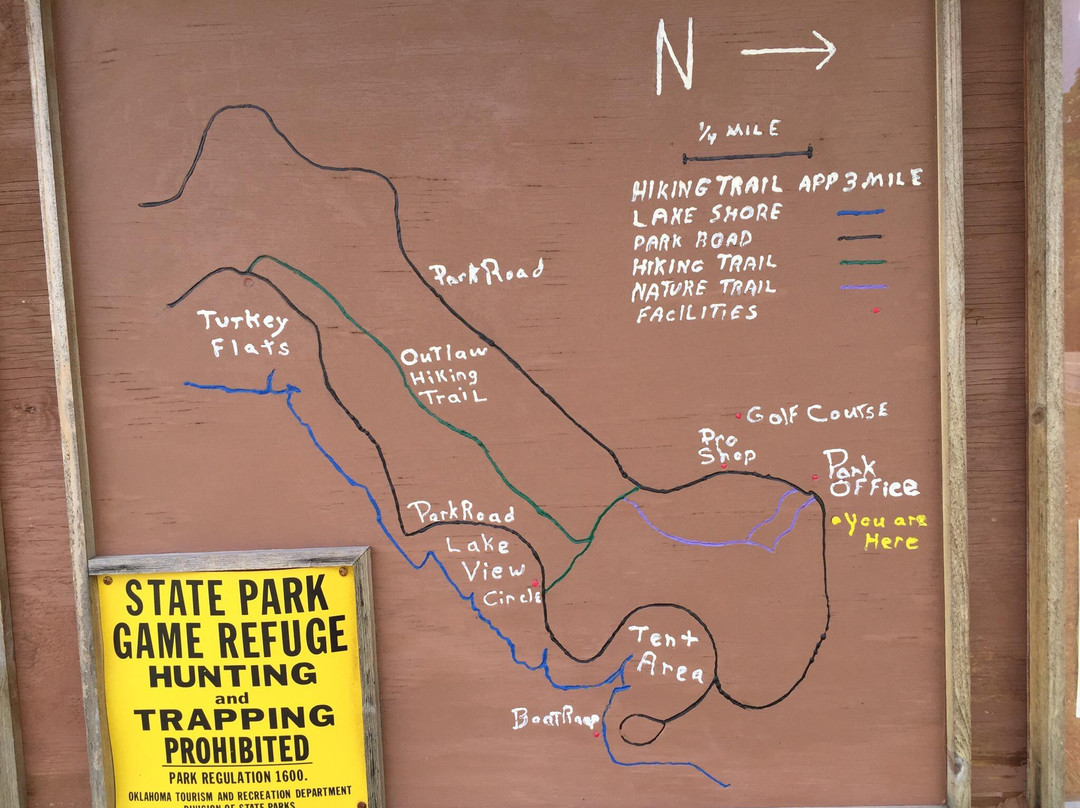 N
1/4 MILE
HIKING TRAIL APP 3 MILE
LAKE SHORE
PARK ROAD
HIKING TRAIL
NATURE TRAIL
FACILITIES
Park Road
Turkey
Flats
Outlaw
Hiking
Trail
Golf Course
Pro
Shop
Park
Office
You are
Here
Park Road
Lake
View
Circle
Tent
Area
Boat Ramp
STATE PARK
GAME REFUGE
HUNTING
and
TRAPPING
PROHIBITED
PARK REGULATION 1600.
OKLAHOMA TOURISM AND RECREATION DEPARTMENT
DIVISION OF STATE PARKS